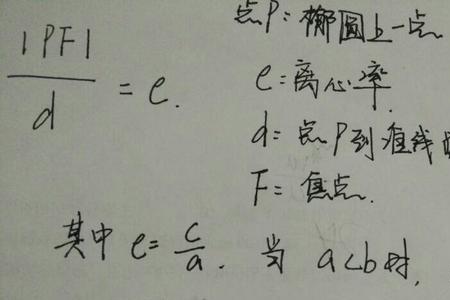 |PF|/d = e.
点P: 椭圆上一点
e: 离心率.
d: 点P到准线
F: 焦点.
其中 e = c/a. 当 a<b 时,